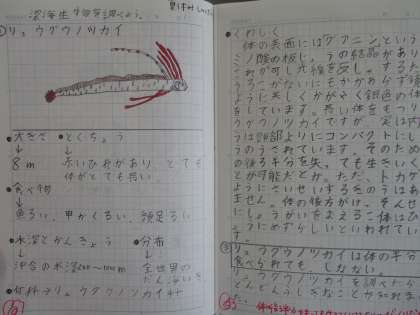 深海生物を調べよう。
リュウグウノツカイ
●大きさ ●とくちょう
↓ ↓
8m 赤いひれがあり、とても
体がとても長い。
●食べ物
↓
魚るい、甲かくるい、頭足るい
●水深とかんきょう ●分布
↓ ↓
沖合の水深200〜1000m 全世界の
●材料 リュウグウノツカイ
くわしく
体の表面にはグアニンという
ミノ酸の板じょうの結晶があり
これが可し光線を反し。するた
ように美しくかがやく銀色の体
をしています。長い体をもつリ
ウグウノツカイですが、実は内
は頭部よりにコンパクトにし
うのうされています。そのため
の後ろ半分を失っても生きいく
とが可能だとか。ただ、トカゲ
ようにさいせいするそのうはあ
ません。体の後方がけっそんせ
にしょうがいをよえるこ体はひ
うにめずらしいといわれてい
す。
リュウグウノツカイは体の半分
食べられても しなない。
リュウグウノツカイを調べたら